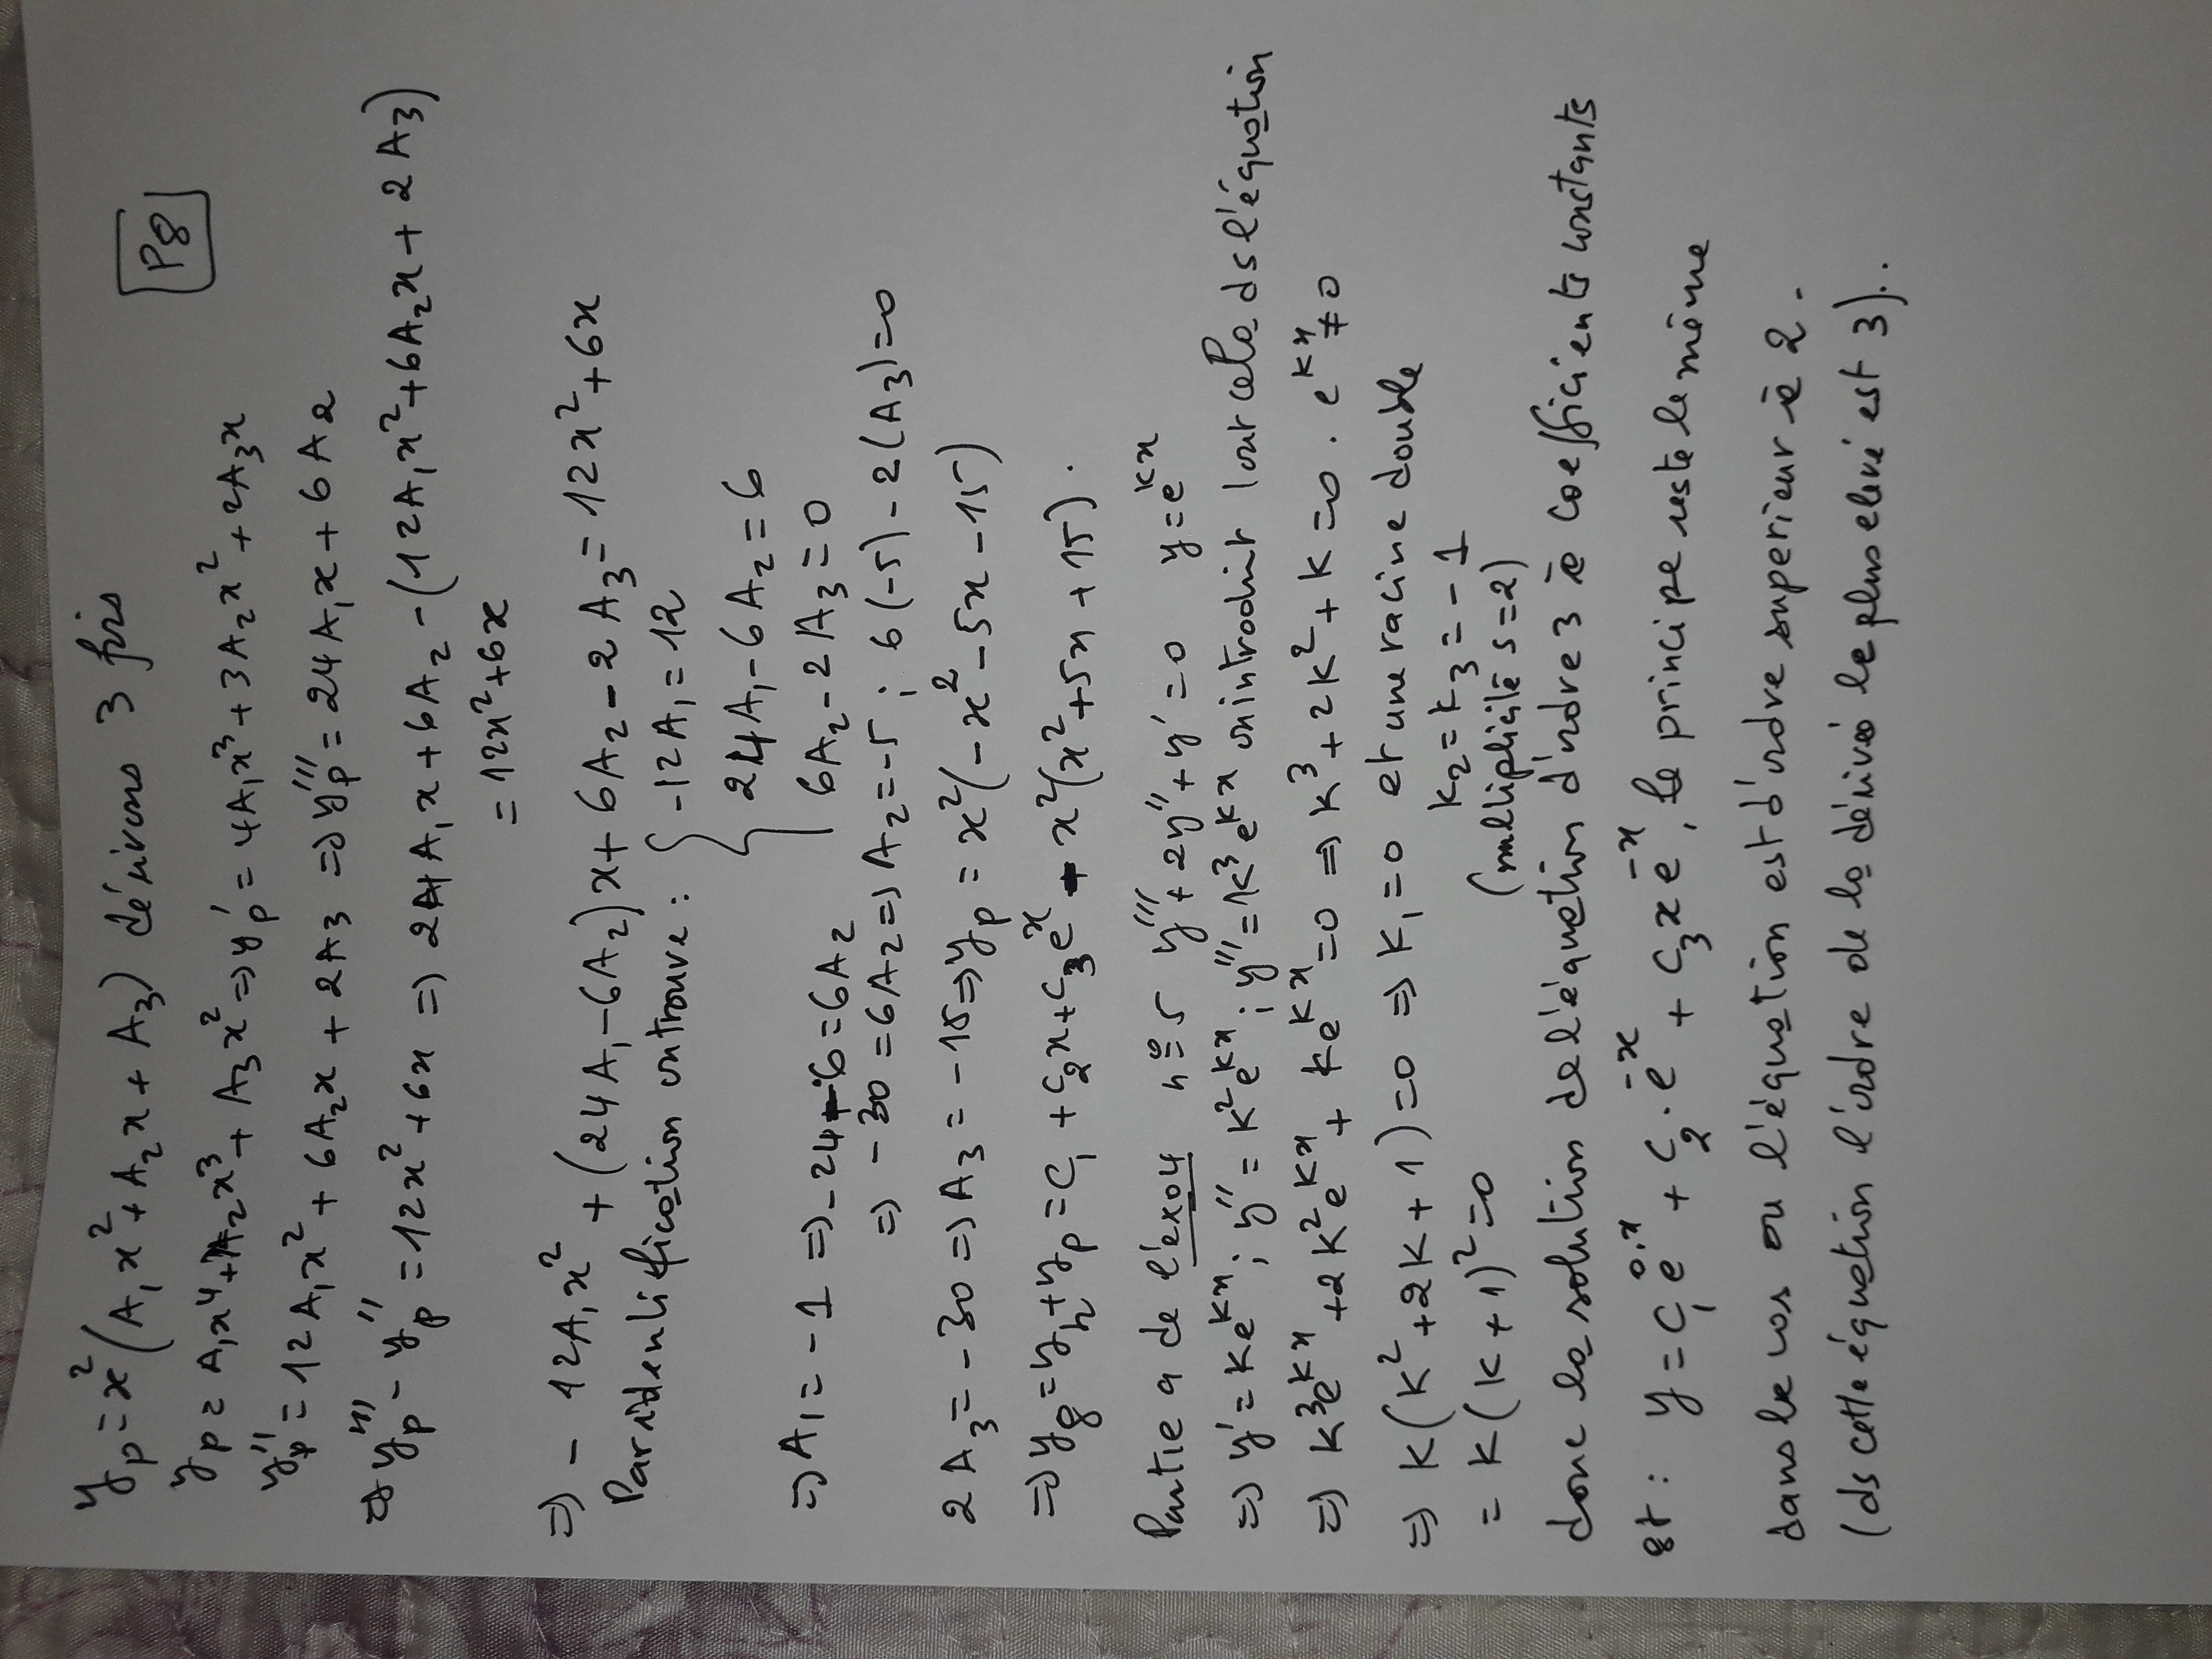 P8
y_p = x²(A₁x² + A₂x + A₃) dérivons 3 fois
y_p = A₁x⁴ + A₂x³ + A₃x² ⇒ y'_p = 4A₁x³ + 3A₂x² + 2A₃x
y''_p = 12A₁x² + 6A₂x + 2A₃ ⇒ y'''_p = 24A₁x + 6A₂
⇒ y'''_p - y''_p = 12x² + 6x ⇒ 24A₁x + 6A₂ - (12A₁x² + 6A₂x + 2A₃)
= 12x² + 6x
⇒ - 12A₁x² + (24A₁ - 6A₂)x + 6A₂ - 2A₃ = 12x² + 6x
Par identification on trouve : { -12A₁ = 12
24A₁ - 6A₂ = 6
6A₂ - 2A₃ = 0
⇒ A₁ = -1 ⇒ -24 - 6 = 6A₂
⇒ -30 = 6A₂ ⇒ A₂ = -5 ; 6(-5) - 2(A₃) = 0
2A₃ = -30 ⇒ A₃ = -15 ⇒ y_p = x²(-x² - 5x - 15)
⇒ y_g = y_h + y_p = C₁ + C₂x + C₃eˣ - x²(x² + 5x + 15).
Partie a de l'exo4 n°=5 y''' + 2y'' + y' = 0 y = e^{kx}
⇒ y' = ke^{kx} ; y'' = k²e^{kx} ; y''' = k³e^{kx} on introduit tout cela ds l'équation
⇒ k³e^{kx} + 2k²e^{kx} + ke^{kx} = 0 ⇒ k³ + 2k² + k = 0 . e^{kx} ≠ 0
⇒ k(k² + 2k + 1) = 0 ⇒ k₁ = 0 et une racine double
= k(k + 1)² = 0 k₂ = k₃ = -1
(multiplicité s=2)
donc la solution de l'équation d'ordre 3 à coefficients constants
est : y = C₁e^{0.x} + C₂.e^{-x} + C₃xe^{-x}, le principe reste le même
dans le cas ou l'équation est d'ordre superieur à 2.
(ds cette équation l'ordre de la dérivée le plus elevé est 3).